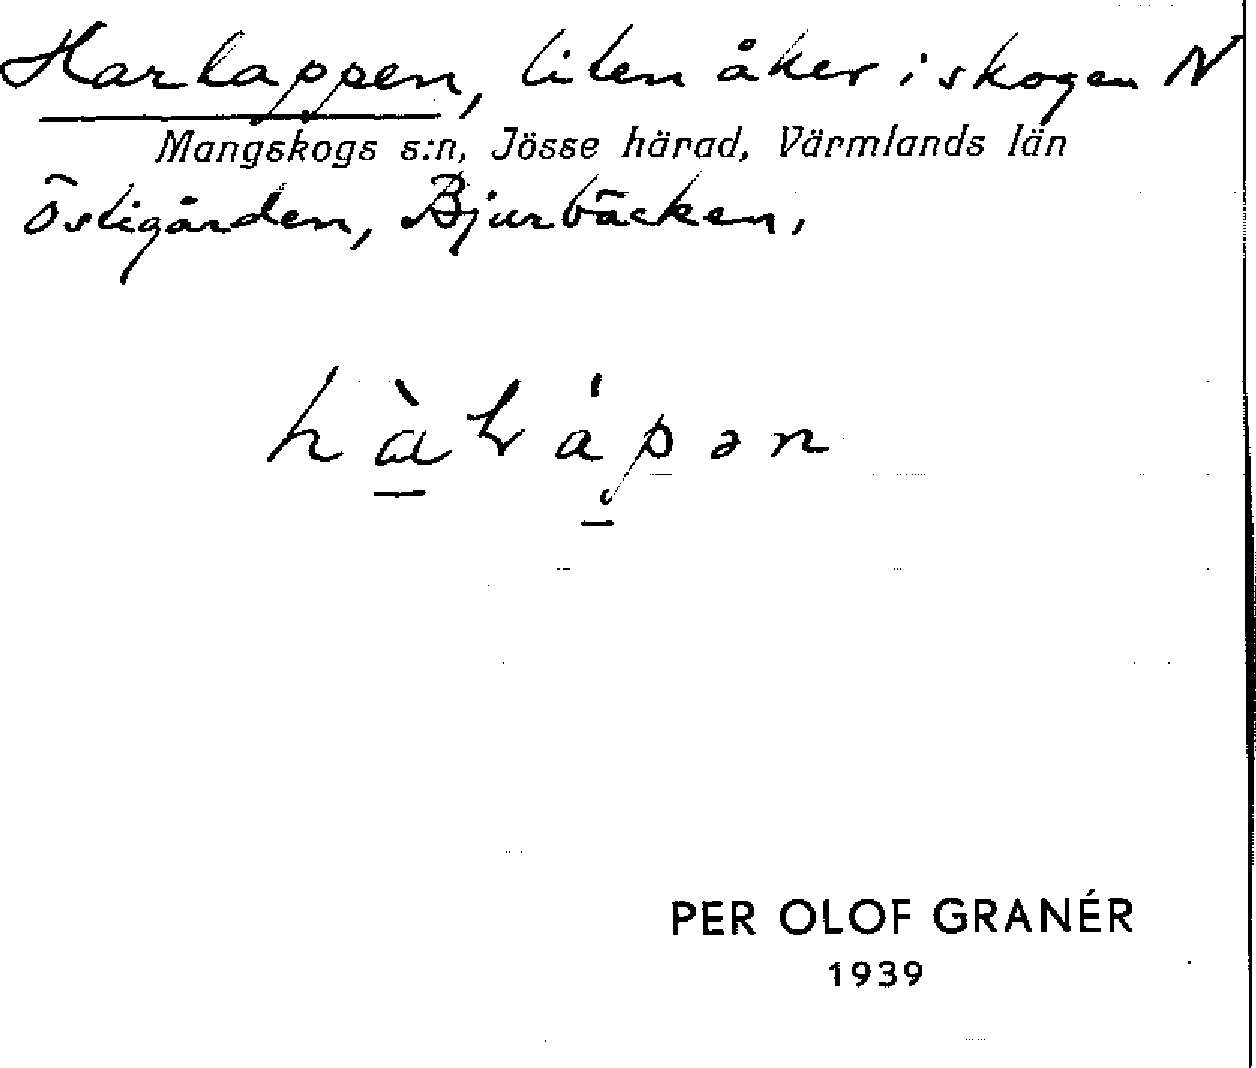 Harlappen, liten åker i skogen N
Mangskogs s:n, Jösse härad, Värmlands län
Östigården, Bjurbäcken,
PER OLOF GRANÉR
1939